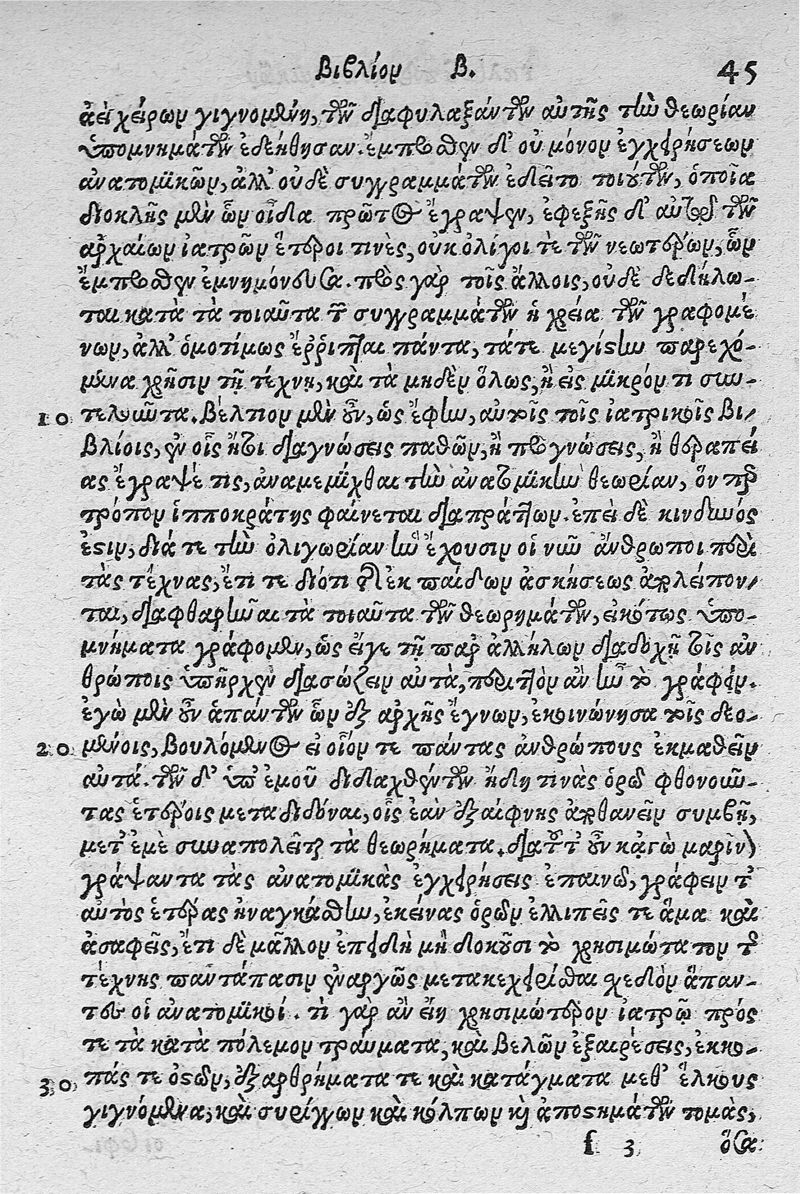 Βιβλίον Β. 45
ἀεὶ χείρων γιγνομένη, τῶν διαφυλαξάντων αὐτῆς τὴν θεωρίαν
ὑπομνημάτων ἐδεήθησαν. ἔμπροσθεν δ' οὐ μόνον ἐγχειρήσεων
ἀνατομικῶν, ἀλλ' οὐδὲ συγγραμμάτων ἐδεῖτο τοιούτων, ὁποῖα
διοκλῆς μὲν ὧν οἶδα πρῶτος ἔγραψεν, ἐφεξῆς δ' αὐτῷ τῶν
ἀρχαίων ἰατρῶν ἕτεροι τινὲς, οὐκ ὀλίγοι τε τῶν νεωτέρων, ὧν
ἔμπροσθεν ἐμνημόνευσα. πρὸς γὰρ τοῖς ἄλλοις, οὐδὲ δεδήλω-
ται κατὰ τὰ τοιαῦτα τῶν συγγραμμάτων ἡ χρεία τῶν γραφομέ
νων, ἀλλ' ὁμοτίμως ἐῤῥιπται πάντα, τά τε μεγίστην παρεχό-
μενα χρῆσιν τῇ τέχνῃ, καὶ τὰ μηδὲν ὅλως, ἢ εἰς μικρόν τι συν-
10 τελοῦντα. Βέλτιον μὲν οὖν, ὡς ἔφην, αὐτοῖς τοῖς ἰατρικοῖς Βι-
βλίοις, ἐν οἷς ἤτοι διαγνώσεις παθῶν, ἢ προγνώσεις, ἢ θεραπεί
ας ἔγραψέ τις, ἀναμεμίχθαι τὴν ἀνατομικὴν θεωρίαν, ὅν περ
τρόπον ἱπποκράτης φαίνεται διαπράττων. ἐπεὶ δὲ κινδυνός
ἐστιν, διά τε τὴν ὀλιγωρίαν ἣν ἔχουσιν οἱ νῦν ἄνθρωποι περὶ
τὰς τέχνας, ἔτι τε διότι τῆς ἐκ παίδων ἀσκήσεως ἀπολείπον-
ται, διαφθαρῆναι τὰ τοιαῦτα τῶν θεωρημάτων, εἰκότως ὑπο-
μνήματα γράφομεν, ὡς εἴγε τῇ παρ' ἀλλήλων διαδοχῇ τοῖς ἀν
θρώποις ὑπῆρχεν διασώζειν αὐτὰ, περιττὸν ἂν ἦν τὸ γράφειν.
ἐγὼ μὲν οὖν ἁπάντων ὧν ἐξ ἀρχῆς ἔγνων, ἐκοινώνησα τοῖς δεο-
20 μένοις, βουλόμενος εἰ οἷόν τε πάντας ἀνθρώπους ἐκμαθεῖν
αὐτά. τῶν δ' ὑπ' ἐμοῦ διδαχθέντων ἤδη τινὰς ὁρῶ φθονοῦν-
τας ἑτέροις μεταδιδόναι, οἷς ἐὰν ἐξαίφνης ἀποθανεῖν συμβῇ,
μετ' ἐμὲ συναπολεῖται τὰ θεωρήματα. διατοῦτ' οὖν κᾀγὼ μαρῖνον
γράψαντα τὰς ἀνατομικὰς ἐγχειρήσεις ἐπαινῶ, γράφειν τ'
αὐτὸς ἑτέρας ἠναγκάσθην, ἐκείνας ὁρῶν ἐλλιπεῖς τε ἅμα καὶ
ἀσαφεῖς, ἔτι δὲ μᾶλλον ἐπειδὴ μὴ δοκοῦσι τὸ χρησιμώτατον τῆς
τέχνης παντάπασιν ἐναργῶς μετακεχειρίσθαι σχεδὸν ἅπαν-
τες οἱ ἀνατομικοί. τί γὰρ ἂν εἴη χρησιμώτερον ἰατρῷ πρός
τε τὰ κατὰ πόλεμον τραύματα, καὶ βελῶν ἐξαιρέσεις, ἐκκο-
30 πάς τε ὀστῶν, ἐξαρθρήματα τε καὶ κατάγματα μεθ' ἕλκους
γιγνόμενα, καὶ συρίγγων καὶ κόλπων καὶ ἀποστημάτων τομὰς,
f 3 ὅσα